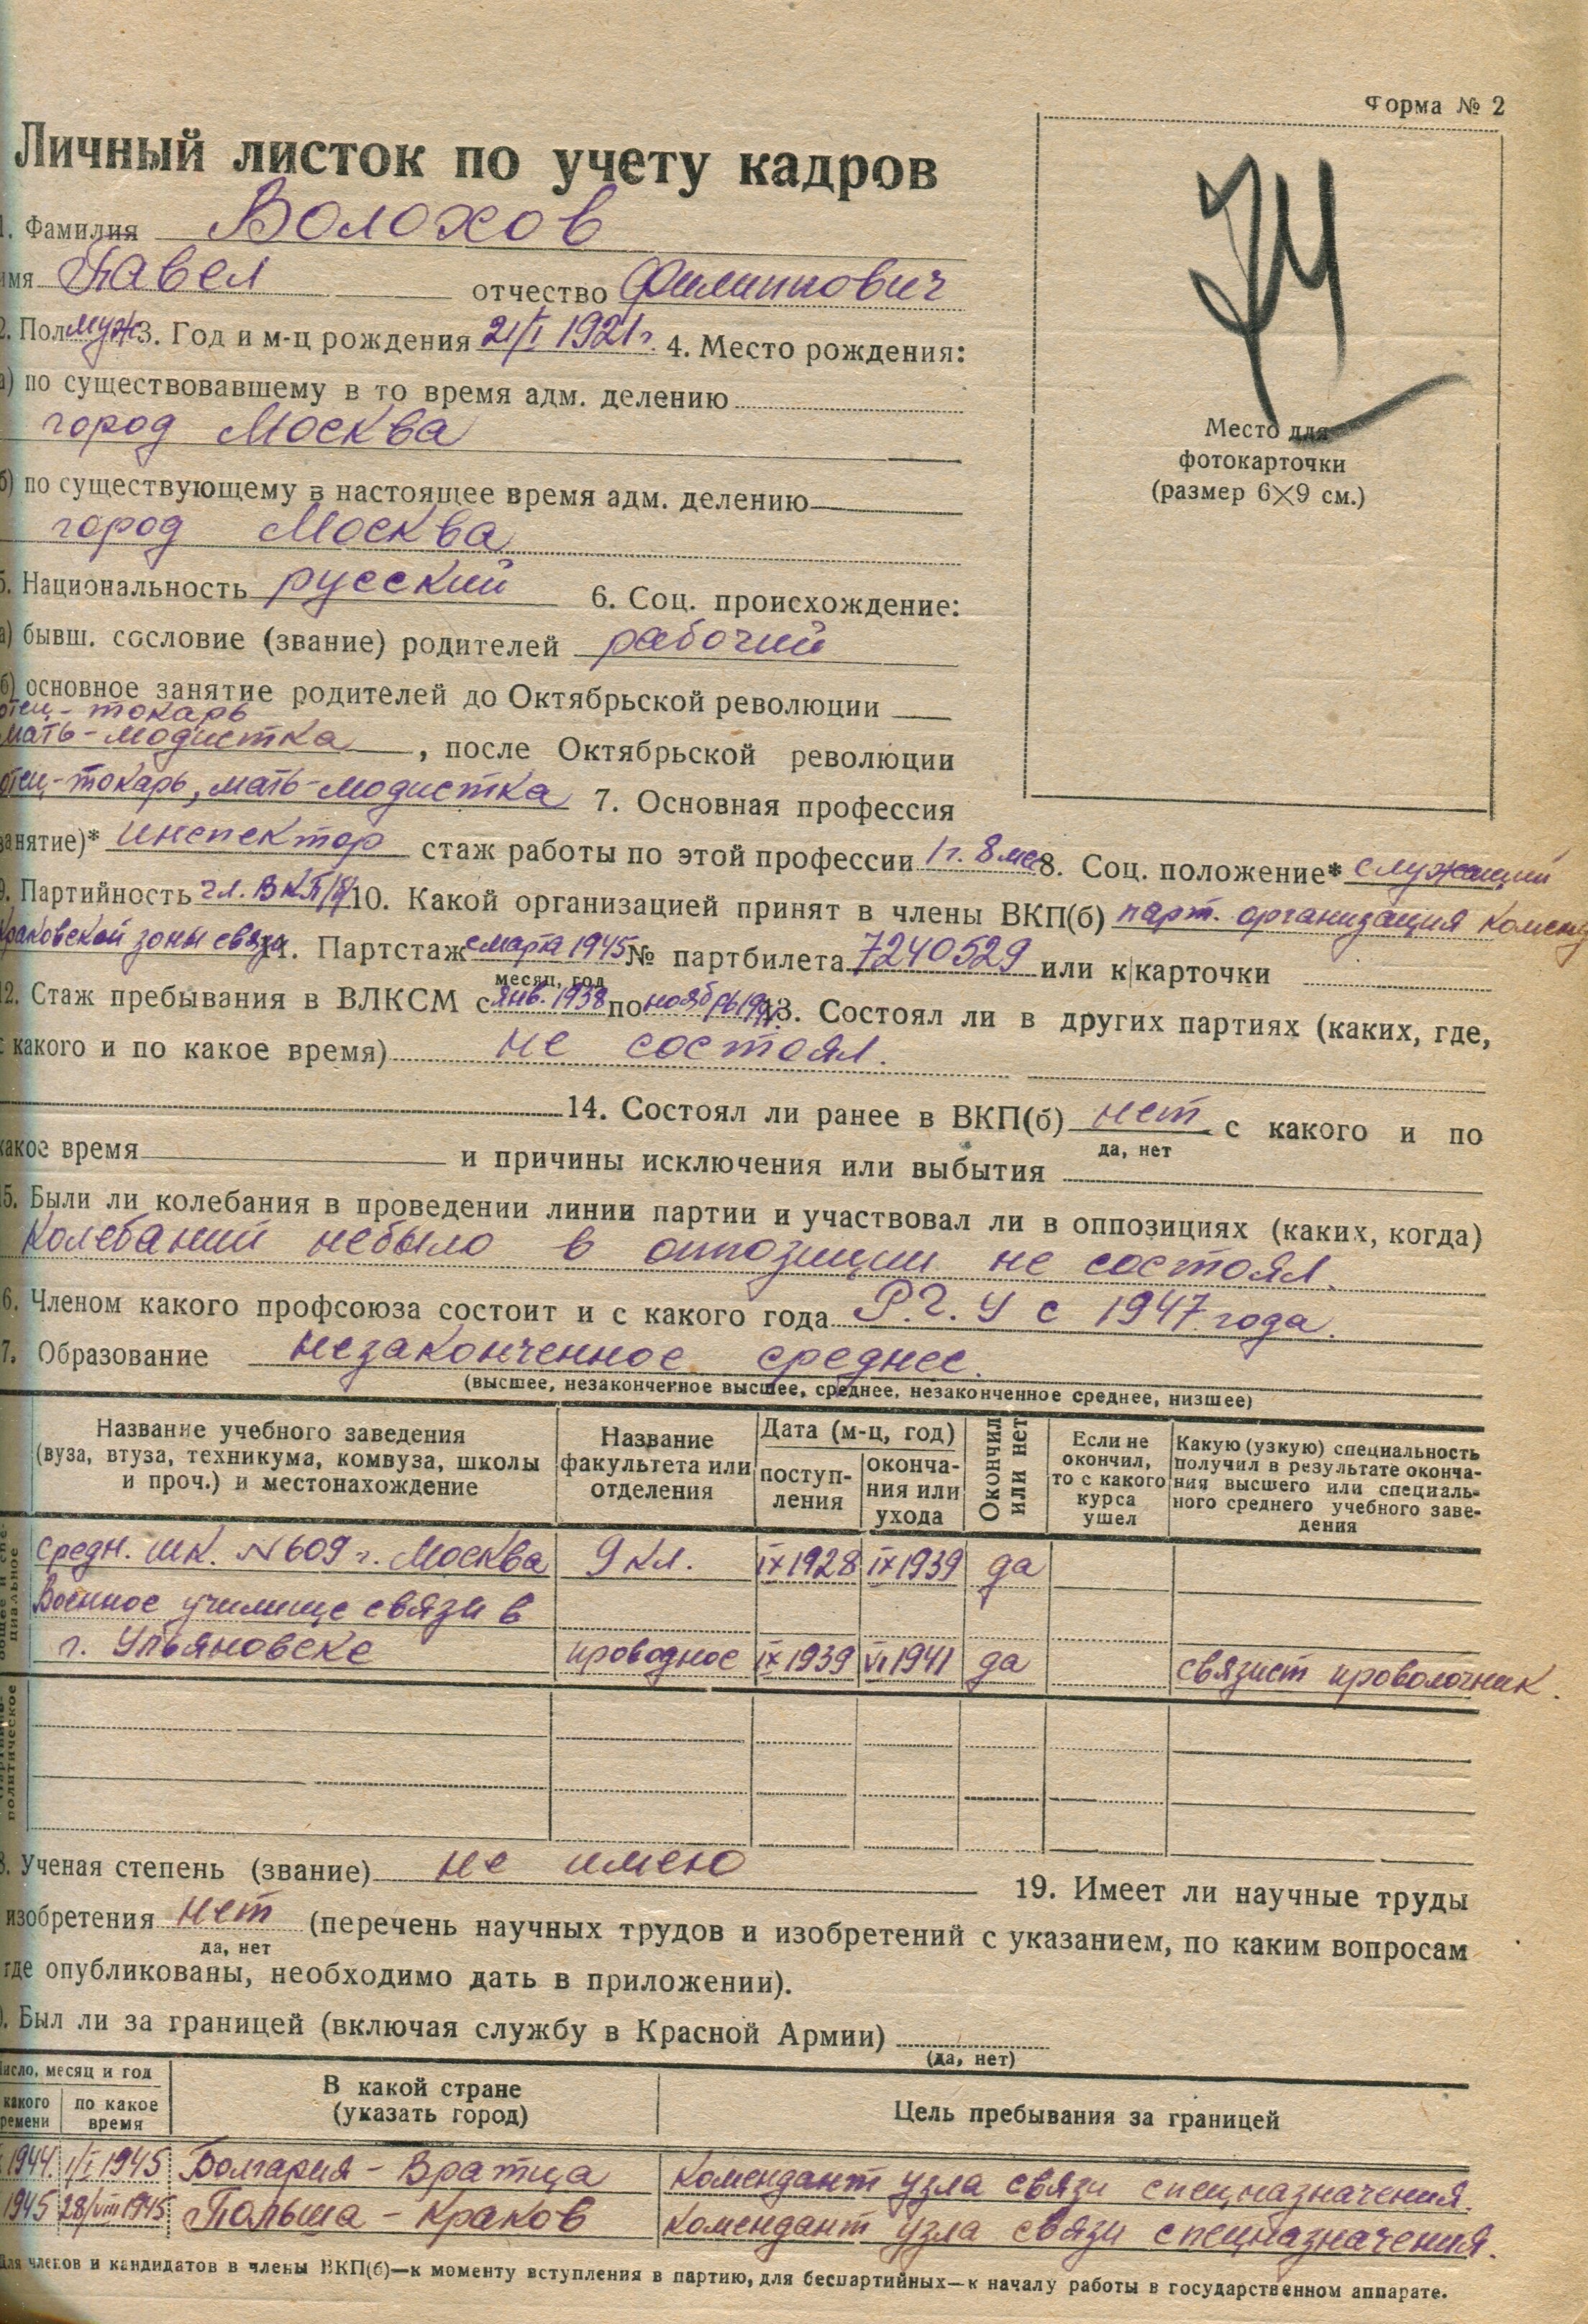 Форма № 2
Личный листок по учету кадров
1. Фамилия Волохов
имя Павел отчество Филиппович
2. Пол муж 3. Год и м-ц рождения 21/I 1921 г. 4. Место рождения:
а) по существовавшему в то время адм. делению
город Москва
Место для
фотокарточки
(размер 6×9 см.)
б) по существующему в настоящее время адм. делению
город Москва
5. Национальность русский 6. Соц. происхождение:
а) бывш. сословие (звание) родителей рабочий
б) основное занятие родителей до Октябрьской революции
отец - токарь
мать - модистка, после Октябрьской революции
отец - токарь, мать - модистка 7. Основная профессия
занятие)* инспектор стаж работы по этой профессии 1 г. 8 мес 8. Соц. положение* служащий
9. Партийность чл. ВКП/б/ 10. Какой организацией принят в члены ВКП(б) парт. организация Коменд
Краковской зоны связи 11. Партстаж с марта 1945 № партбилета 7240529 или к карточки
месяц, год
12. Стаж пребывания в ВЛКСМ с янв. 1938 по ноябрь 13. Состоял ли в других партиях (каких, где,
с какого и по какое время) не состоял.
14. Состоял ли ранее в ВКП(б) нет с какого и по
да, нет
какое время и причины исключения или выбытия
15. Были ли колебания в проведении линии партии и участвовал ли в оппозициях (каких, когда)
Колебаний небыло в оппозиции не состоял.
16. Членом какого профсоюза состоит и с какого года Р.Г.У с 1947 года.
17. Образование незаконченное среднее.
(высшее, незаконченное высшее, среднее, незаконченное среднее, низшее)
Название учебного заведения
(вуза, втуза, техникума, комвуза, школы
и проч.) и местонахождение
Название
факультета или
отделения
Дата (м-ц, год)
поступ-
ления
оконча-
ния или
ухода
Окончил
или нет
Если не
окончил,
то с какого
курса
ушел
Какую (узкую) специальность
получил в результате оконча-
ния высшего или специаль-
ного среднего учебного заве-
дения
Средн. шк. № 609 г. Москва 9 кл. IX 1928 IX 1939 да
Военное училище связи в
г. Ульяновске проводное IX 1939 VI 1941 да связист проволочник.
политическое
18. Ученая степень (звание) не имею 19. Имеет ли научные труды
изобретения нет (перечень научных трудов и изобретений с указанием, по каким вопросам
да, нет
где опубликованы, необходимо дать в приложении).
20. Был ли за границей (включая службу в Красной Армии)
(да, нет)
Число, месяц и год
какого
времени
по какое
время
В какой стране
(указать город)
Цель пребывания за границей
1944. 1/I 1945 Болгария - Вратца Комендант узла связи спецназначения.
1945 28/VIII 1945 Польша - Краков Комендант узла связи спецназначения.
Для членов и кандидатов в члены ВКП(б)—к моменту вступления в партию, для беспартийных—к началу работы в государственном аппарате.